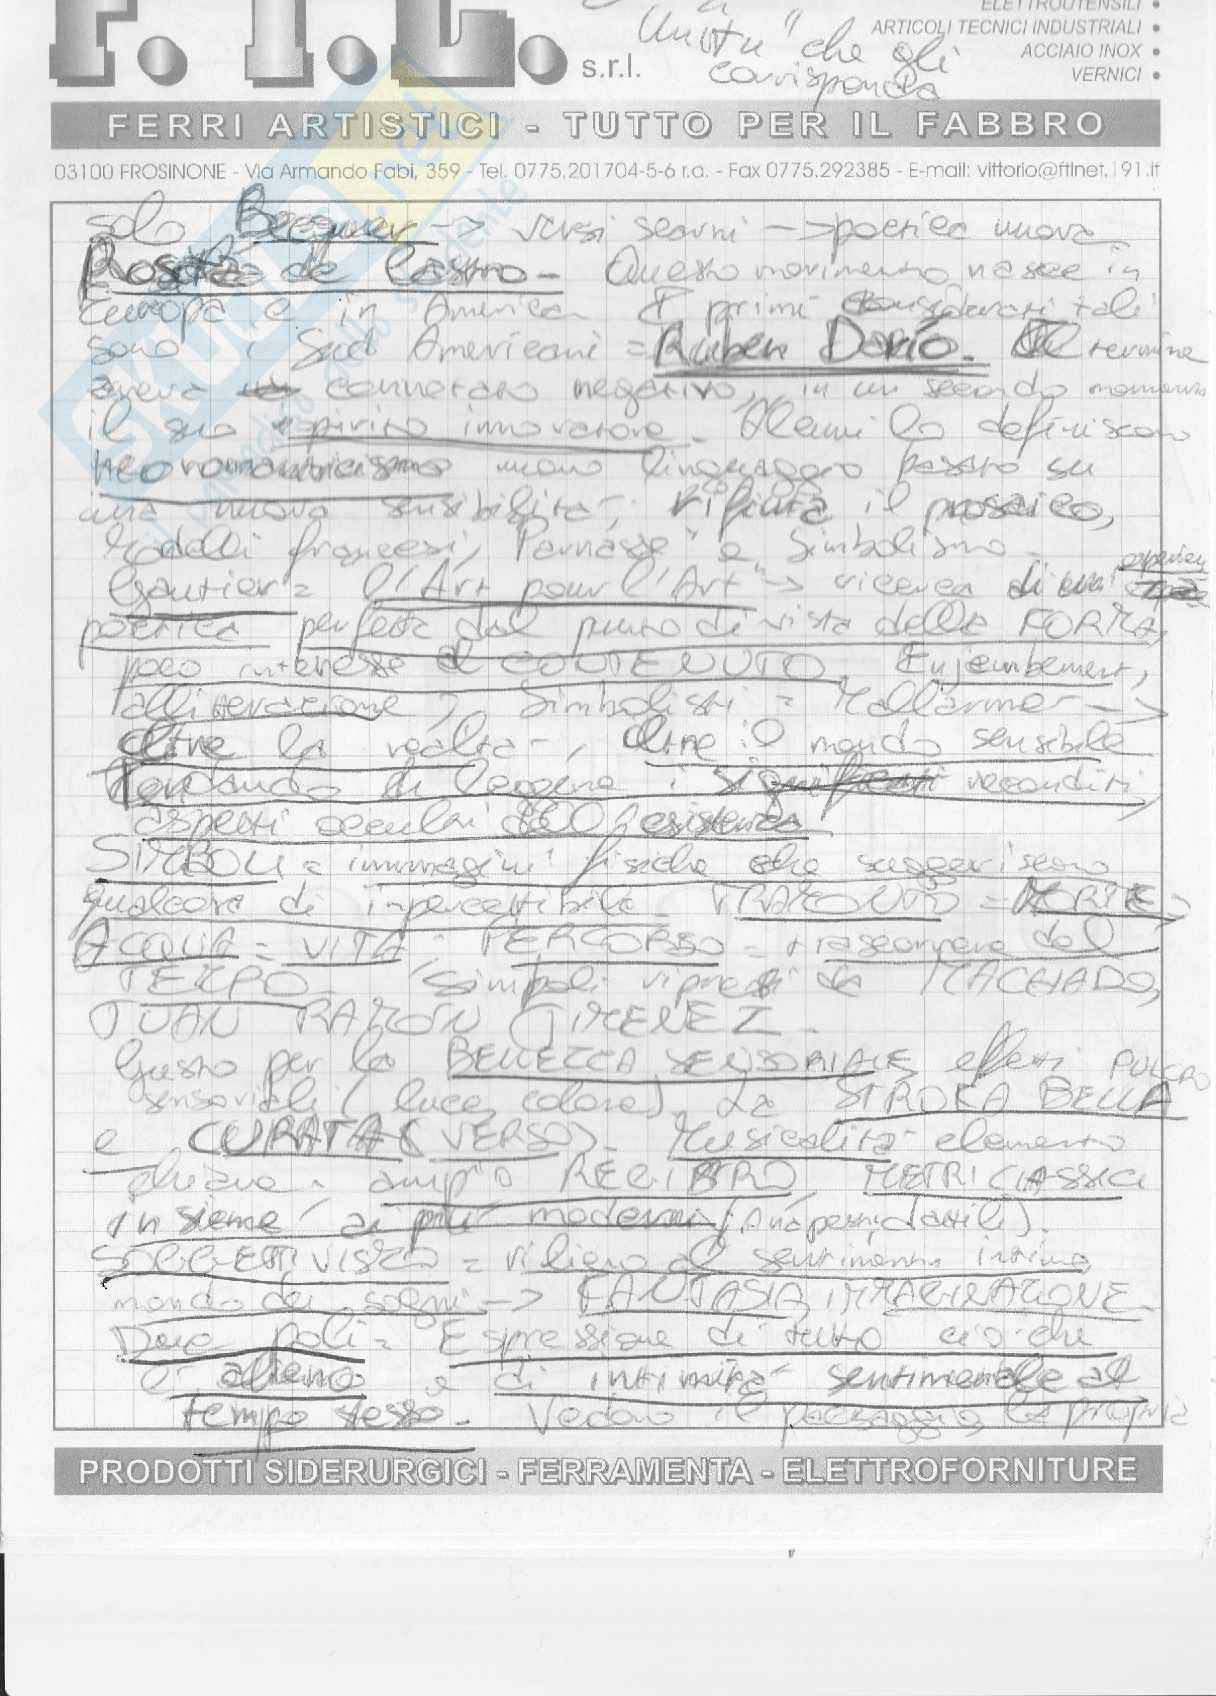 ELETTROUTENSILI •
F. T. L. s.r.l.
ARTICOLI TECNICI INDUSTRIALI •
Unità" che gli
ACCIAIO INOX •
corrisponda
VERNICI •
FERRI ARTISTICI - TUTTO PER IL FABBRO
03100 FROSINONE - Via Armando Fabi, 359 - Tel. 0775.201704-5-6 r.a. - Fax 0775.292385 - E-mail: vittorio@ftlnet.191.it
solo Becquer -> versi scarni -> poetica nuova
Rosalia de Castro - Questo movimento nasce in
Europa e in America. I primi considerati tali
sono i Sud Americani = Ruben Darío. Il termine
aveva connotato negativo, in un secondo momento
il suo spirito innovatore. Alcuni lo definiscono
neoromanticismo nuovo linguaggio basato su
una nuova sensibilità, rifiuta il prosaico,
Modelli francesi, Parnasse e Simbolismo -
Gautier = l'Art pour l'Art" -> ricerca di
poetica perfetta dal punto di vista della FORMA,
poco interesse al CONTENUTO. Enjembement,
allitterazione, Simbolisti = Mallarmé ->
oltre la realtà, oltre il mondo sensibile
Tentando di leggere i significati reconditi,
aspetti occulti dell'esistenza
SIMBOLI = immagini fisiche che suggeriscono
qualcosa di impercettibile. TRAMONTO = MORTE ->
ACQUA = VITA - PERCORSO = trascorrere del
TEMPO. Simboli ripresi da MACHADO,
JUAN RAMÓN GIMENEZ.
Gusto per la BELLEZZA SENSORIALE effetti PULCRO
sensoriali (luce, colore). La STROFA BELLA
e CURATA (VERSO). Musicalità elemento
chiave, ampio REGISTRO, METRI CLASSICI
insieme ai più moderni (Anapesti, dattili).
SOGGETTIVISMO = ripiego al sentimento intimo
mondo dei sogni -> FANTASIA, IMMAGINAZIONE.
Due poli = Espressione di tutto ciò che
è alieno e di intimità sentimentale al
tempo stesso. Vedono il paesaggio, la propria
PRODOTTI SIDERURGICI - FERRAMENTA - ELETTROFORNITURE